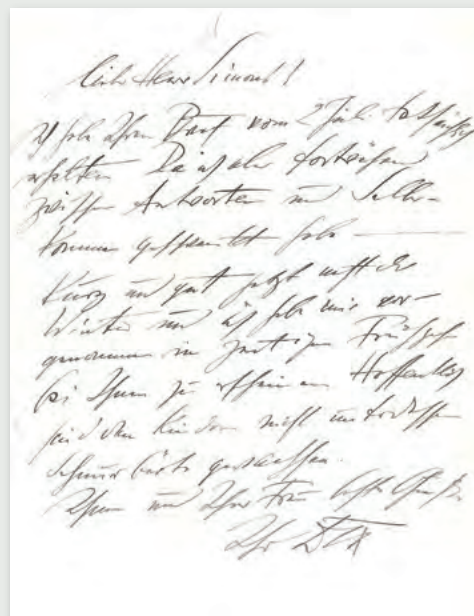 Lieber Herr Simon!
Ich habe Ihren Brief vom 2 Juli
erhalten Da ich aber fortwährend
zwischen Antworten und Selbst-
kommen geschwankt habe —
Kurz und gut jetzt naht der
Winter und ich habe mir vor-
genommen im zeitigen Frühjahr
bei Ihnen zu erscheinen Hoffentlich
sind den Kindern nicht unterdessen
Schnurrbärte gewachsen.
Ihnen und Ihrer Frau beste Grüße
Ihr Dix